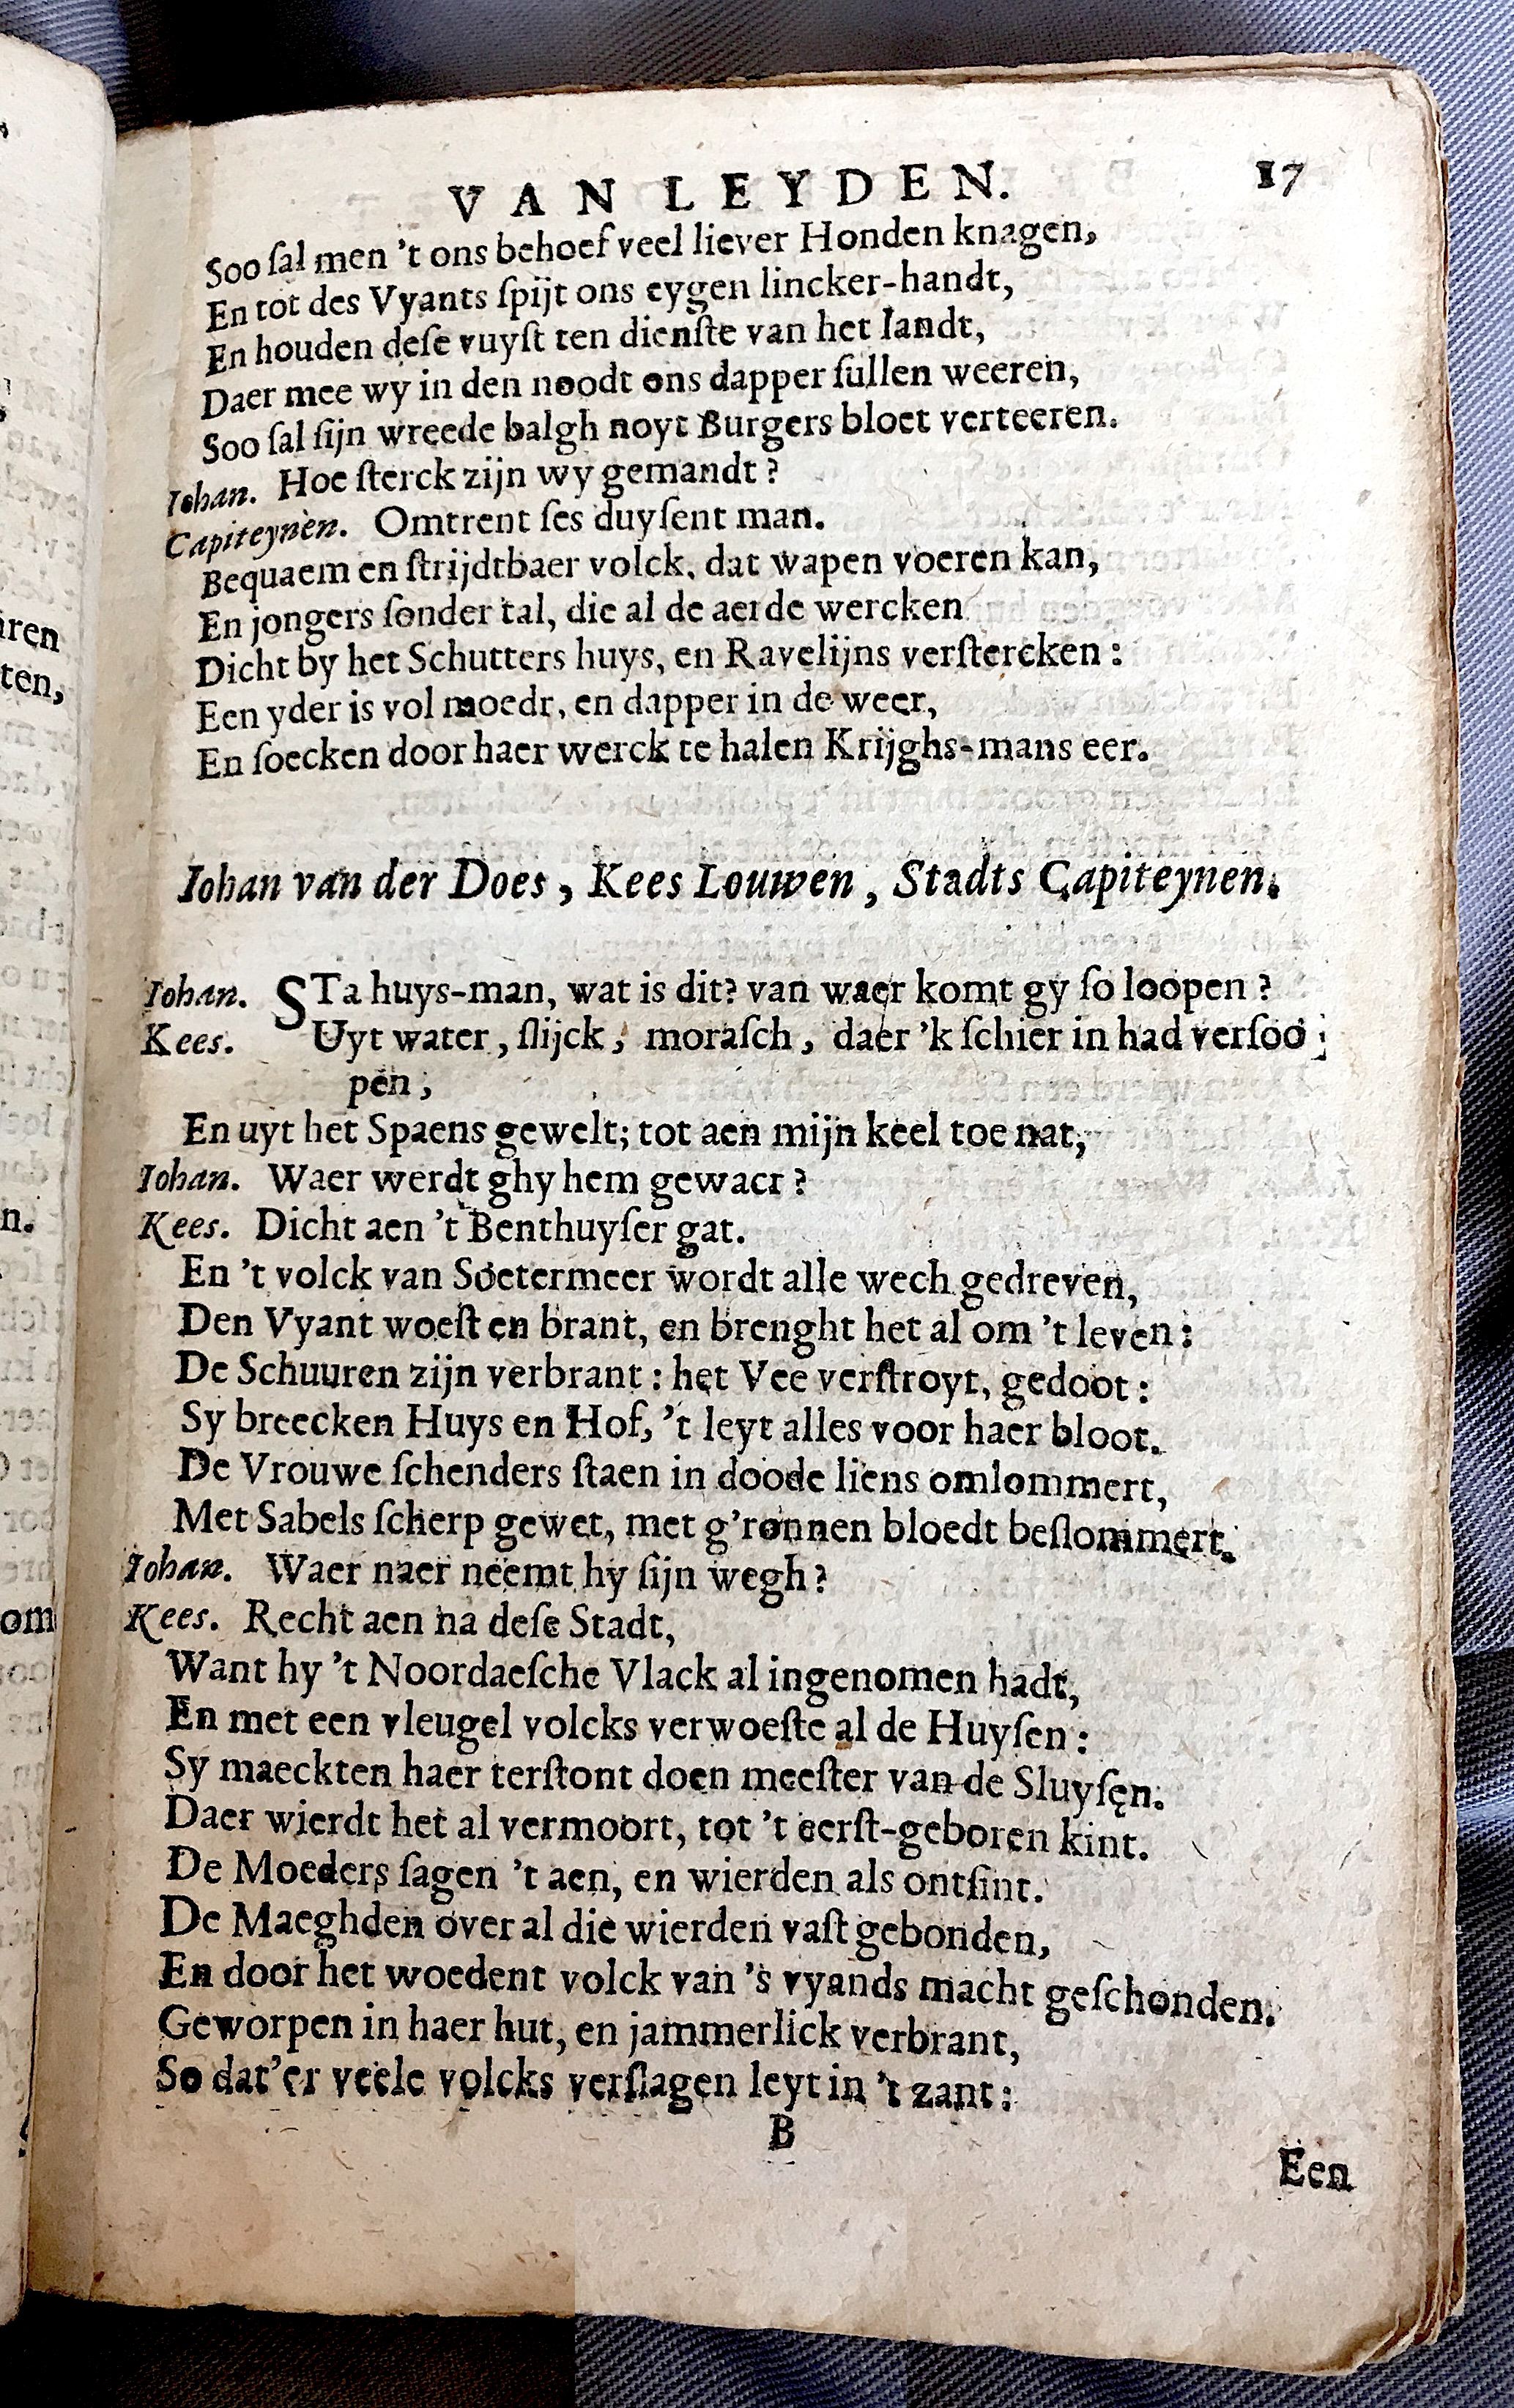 VAN LEYDEN. 17
Soo ſal men 't ons behoef veel liever Honden knagen,
En tot des Vyants ſpijt ons eygen lincker-handt,
En houden deſe vuyſt ten dienſte van het landt,
Daer mee wy in den noodt ons dapper ſullen weeren,
Soo ſal ſijn wreede balgh noyt Burgers bloet verteeren.
Iohan. Hoe ſterck zijn wy gemandt?
Capiteynen. Omtrent ſes duyſent man.
Bequaem en ſtrijdtbaer volck, dat wapen voeren kan,
En jongers ſonder tal, die al de aerde wercken
Dicht by het Schutters huys, en Ravelijns verſtercken:
Een yder is vol moedt, en dapper in de weer,
En ſoecken door haer werck te halen Krijghs-mans eer.
Iohan van der Does, Kees Louwen, Stadts Capiteynen.
Iohan. STa huys-man, wat is dit? van waer komt gy ſo loopen?
Kees. Uyt water, ſlijck, moraſch, daer 'k ſchier in had verſoo-
pen;
En uyt het Spaens gewelt; tot aen mijn keel toe nat,
Iohan. Waer werdt ghy hem gewaer?
Kees. Dicht aen 't Benthuyſer gat.
En 't volck van Soetermeer wordt alle wech gedreven,
Den Vyant woeſt en brant, en brenght het al om 't leven:
De Schuuren zijn verbrant: het Vee verſtroyt, gedoot:
Sy breecken Huys en Hof, 't leyt alles voor haer bloot.
De Vrouwe ſchenders ſtaen in doode liens omlommert,
Met Sabels ſcherp gewet, met g'ronnen bloedt beſlommert.
Iohan. Waer naer neemt hy ſijn wegh?
Kees. Recht aen na deſe Stadt,
Want hy 't Noordaeſche Vlack al ingenomen hadt,
En met een vleugel volcks verwoeſte al de Huyſen:
Sy maeckten haer terſtont doen meeſter van de Sluyſen.
Daer wierdt het al vermoort, tot 't eerſt-geboren kint.
De Moeders ſagen 't aen, en wierden als ontſint.
De Maeghden over al die wierden vaſt gebonden,
En door het woedent volck van 's vyands macht geſchonden.
Geworpen in haer hut, en jammerlick verbrant,
So dat'er veele volcks verſlagen leyt in 't zant:
B
Een